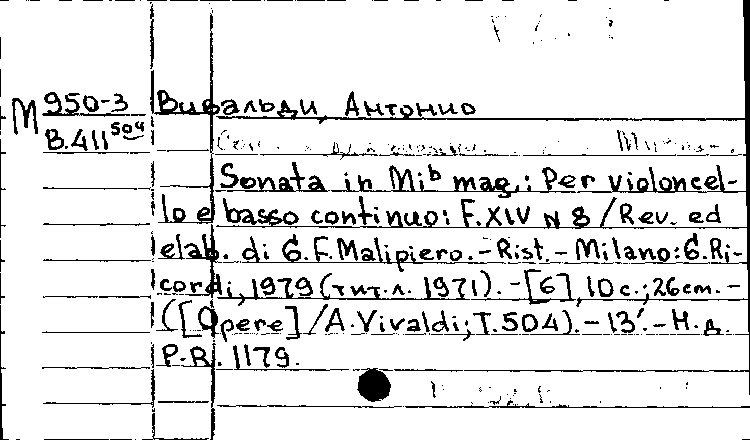 М 950-3 Вивальди, Антонио
В.411 504
Sonata in Mi♭ mag.: Per violoncel-
lo e basso continuo: F.XIV N 8 / Rev. ed
elab. di G.F. Malipiero. - Rist. - Milano: G. Ri-
cordi, 1979 (тит.л. 1971). - [6], 10 с.; 26cm. -
([Opere] / A. Vivaldi; T.504). - 13'. - Н.д.
P.R. 1179.